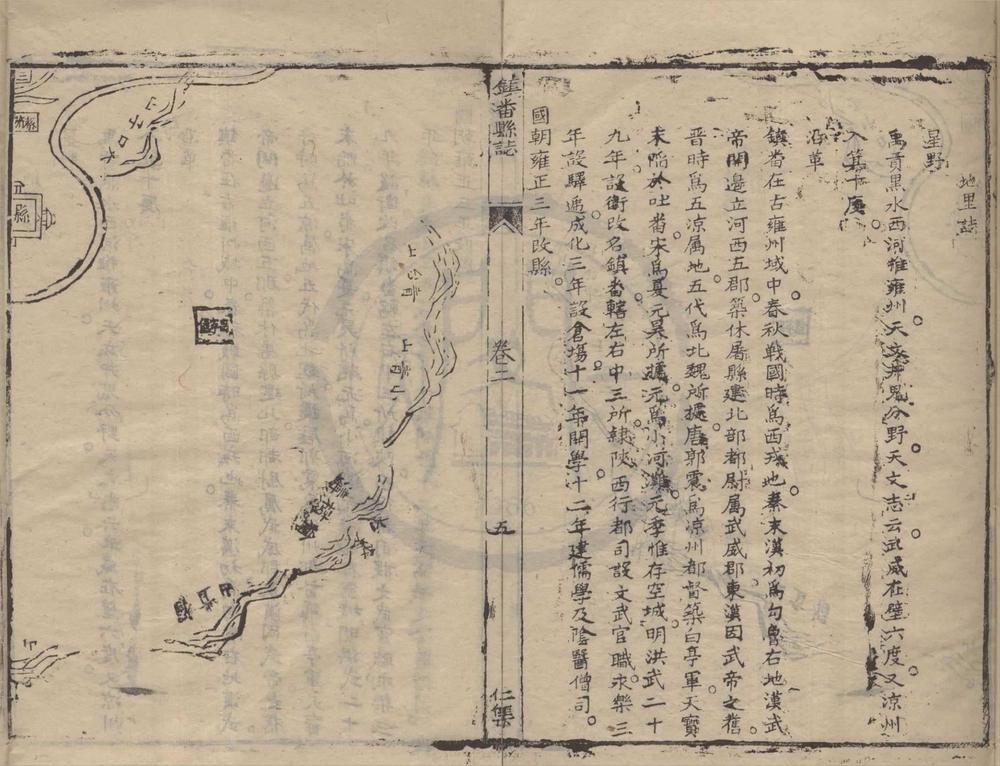 地里誌
星野
禹貢黑水西河惟雍州天文井鬼分野天文志云武威在壁六度又涼州
入箕十度
沿革
鎮番在古雍州域中春秋戰國時爲西戎地秦末漢初爲匈奴右地漢武
帝開邊立河西五郡築休屠縣建北部都尉属武威郡東漢因武帝之舊
晉時爲五涼属地五代爲北魏所據唐郭震爲凉州都督築白亭軍天寶
末陷於吐番宋爲夏元昊所據元爲小河灘元季惟存空城明洪武二十
九年設衛改名鎮番轄左右中三所隷陜西行都司設文武官職永樂三
年設驛遞成化三年設倉塲十一年開學十二年建儒學及陰醫僧司
國朝雍正三年改縣
鎮番縣誌
卷二
五
仁集
縣